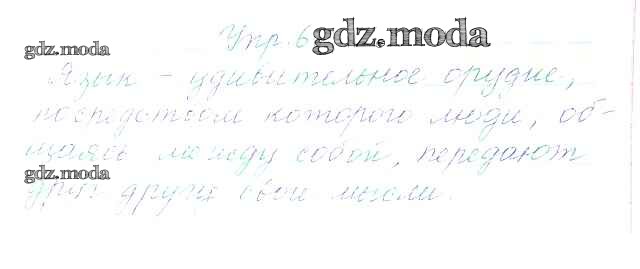 Упр. 6 gdz.moda
gdz.moda
Язык – удивительное орудие,
посредством которого люди, об-
щаясь между собой, передают
gdz.moda
друг другу свои мысли.